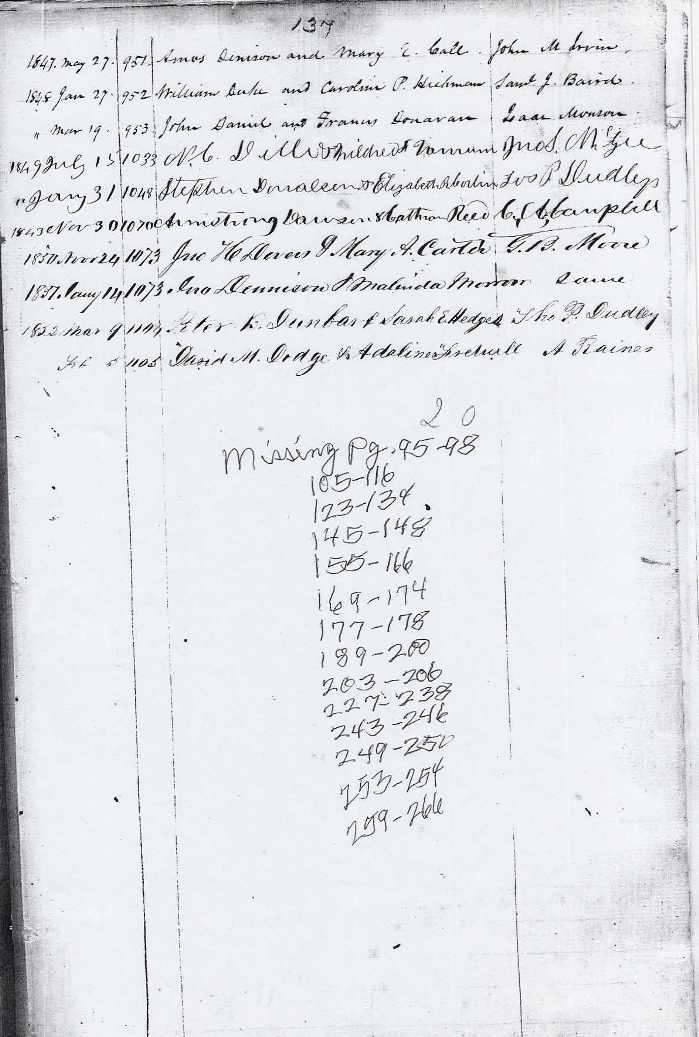 137
1847. May 27. 951. Amos Denison and Mary E. Call. John M Irvin.
1848 Jan 27. 952 William Duke and Caroline P. Hickman Saml J. Baird.
" Mar 19. 953. John Daniel and Francis Donavan Isaac Monson
1849 July 15 1033 N. C. & Mildred Jno S.
" Jany 31 1048 Stephen Donalson & Elizabeth P Dudley
Nov 30 1070 Armstrong Dawson & Reed Campbell
Nov 24 1073 Jno H Dovers & Mary A. Carter G. B. Moore
Jany 14 1073 Jno Dennison & Malinda Morrow Same
1852 Mar 9 K. Dunbar & Sarah E Hedges Tho. P. Dudley
1105 David M. Dodge & Adaline A Raines
20
Missing pg. 95-98
105-116
123-134
145-148
155-166
169-174
177-178
189-200
203-206
227-238
243-246
249-250
253-254
259-266